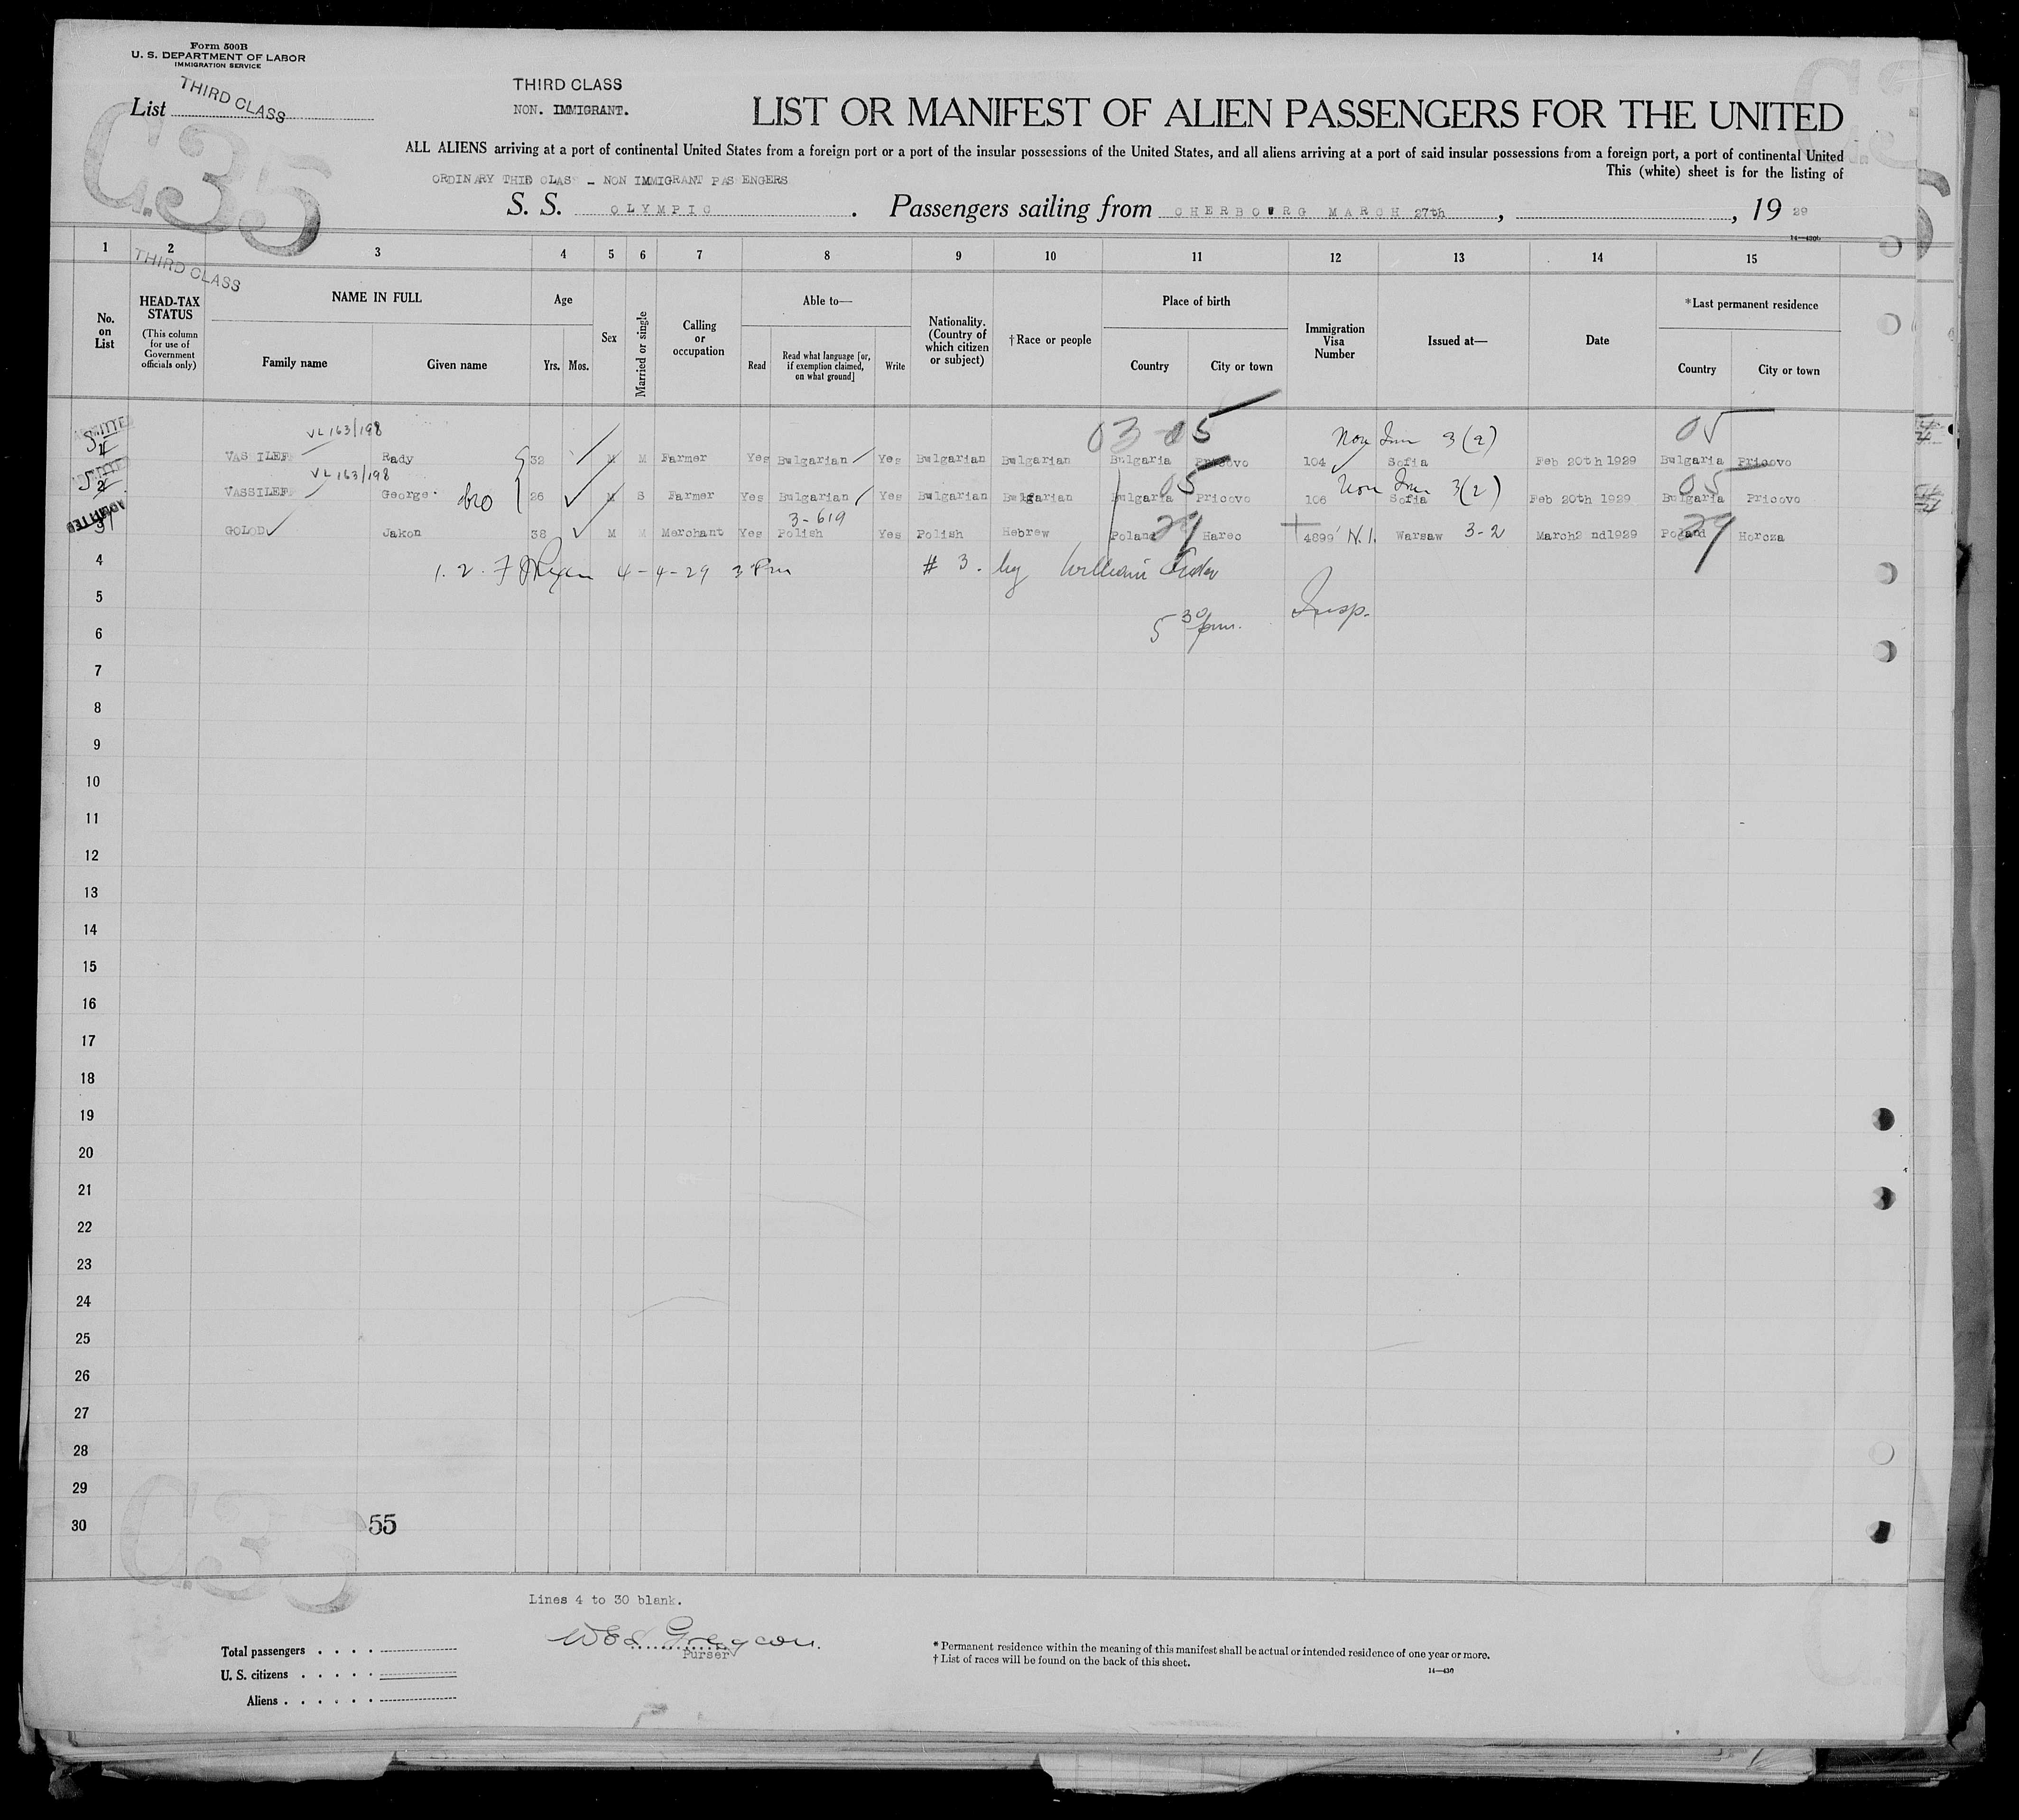 Form 500B
U. S. DEPARTMENT OF LABOR
IMMIGRATION SERVICE
List THIRD CLASS
THIRD CLASS
NON. IMMIGRANT.
LIST OR MANIFEST OF ALIEN PASSENGERS FOR THE UNITED
ALL ALIENS arriving at a port of continental United States from a foreign port or a port of the insular possessions of the United States, and all aliens arriving at a port of said insular possessions from a foreign port, a port of continental United
This (white) sheet is for the listing of
ORDINARY THID CLAS - NON IMMIGRANT PAS ENGERS
C.35
S. S. OLYMPIC. Passengers sailing from CHERBOURG MARCH 27th, , 19 29
1 2 3 4 5 6 7 8 9 10 11 12 13 14 15
THIRD CLASS
No. on List
HEAD-TAX STATUS (This column for use of Government officials only)
NAME IN FULL Family name Given name
Age Yrs. Mos.
Sex
Married or single
Calling or occupation
Able to— Read Read what language [or, if exemption claimed, on what ground] Write
Nationality. (Country of which citizen or subject)
†Race or people
Place of birth Country City or town
Immigration Visa Number
Issued at—
Date
*Last permanent residence Country City or town
VL 163/198 03 05 Non Imm 3(2) 05
ADMITTED 1 VASILEF Rady 32 M M Farmer Yes Bulgarian Yes Bulgarian Bulgarian Bulgaria Pricovo 104 Sofia Feb 20th 1929 Bulgaria Pricovo
VL 163/198 05 Non Imm 3(2) 05
ADMITTED 2 VASSILEF George bro 26 M S Farmer Yes Bulgarian Yes Bulgarian Bulgarian Bulgaria Pricovo 106 Sofia Feb 20th 1929 Bulgaria Pricovo
3-619 29 29
ADMITTED 3 GOLOD Jakon 38 M M Merchant Yes Polish Yes Polish Hebrew Poland Harec 4899 N.I. Warsaw 3-2 March2 nd1929 Poland Horcza
4 1. 2. 4-4-29 3 Pm # 3. by William
5 Insp.
6 5 30 pm.
7
8
9
10
11
12
13
14
15
16
17
18
19
20
21
22
23
24
25
26
27
28
29
30 55
C.35
Lines 4 to 30 blank.
Purser
Total passengers
U. S. citizens
Aliens
* Permanent residence within the meaning of this manifest shall be actual or intended residence of one year or more.
† List of races will be found on the back of this sheet.
14—430